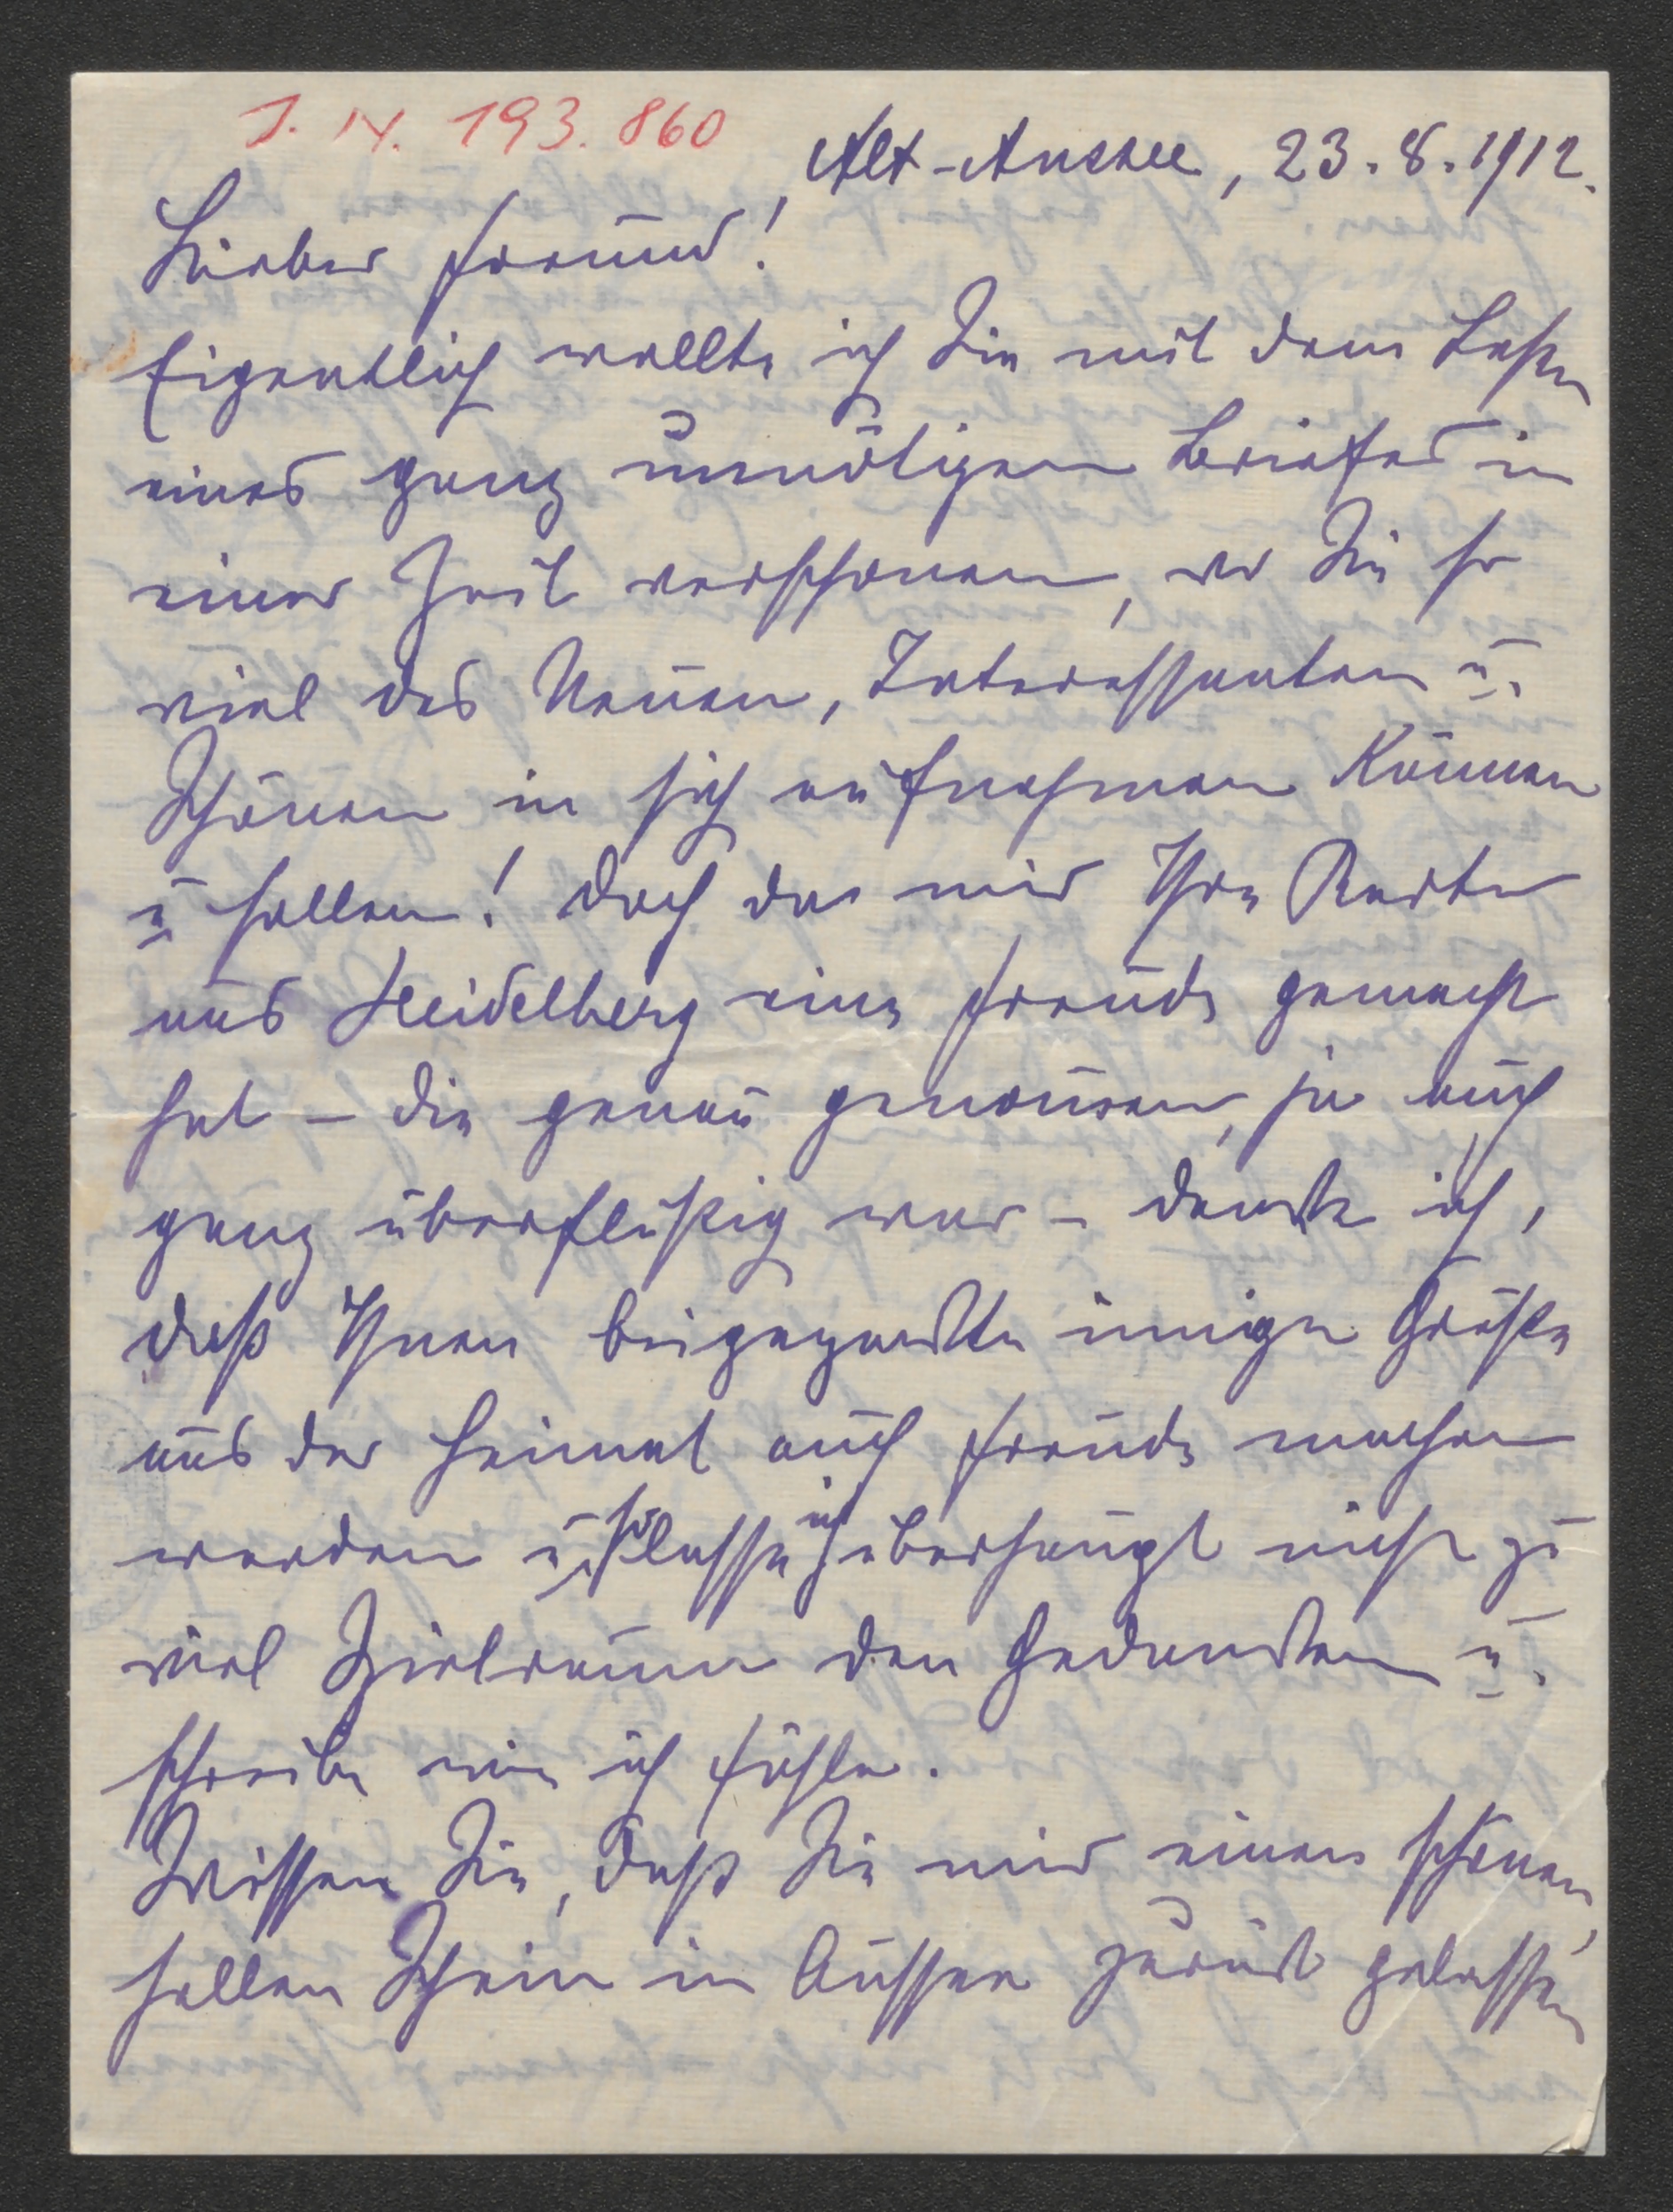 J. N. 193.860
Alt-Aussee, 23.8.1912.
Lieber Freund!
Eigentlich wollte ich Sie mit dem Lesen
eines ganz unnötigen Briefes in
einer Zeit verschonen, wo Sie so
viel des Neuen, Interessanten u.
Schönen in sich aufnehmen können
u sollen! Doch da mir Ihre Karte
aus Heidelberg eine Freude gemacht
hat – die genau genommen, ja auch
ganz überflüßig war – denke ich,
daß Ihnen beigepackte innige Grüße
aus der Heimat auch Freude machen
werden u. so lasse ich überhaupt nicht zu
viel Spielraum den Gedanken u.
schreibe wie ich fühle.
Wissen Sie, daß Sie mir einen schönen,
hellen Schein in Aussee zurück gelassen